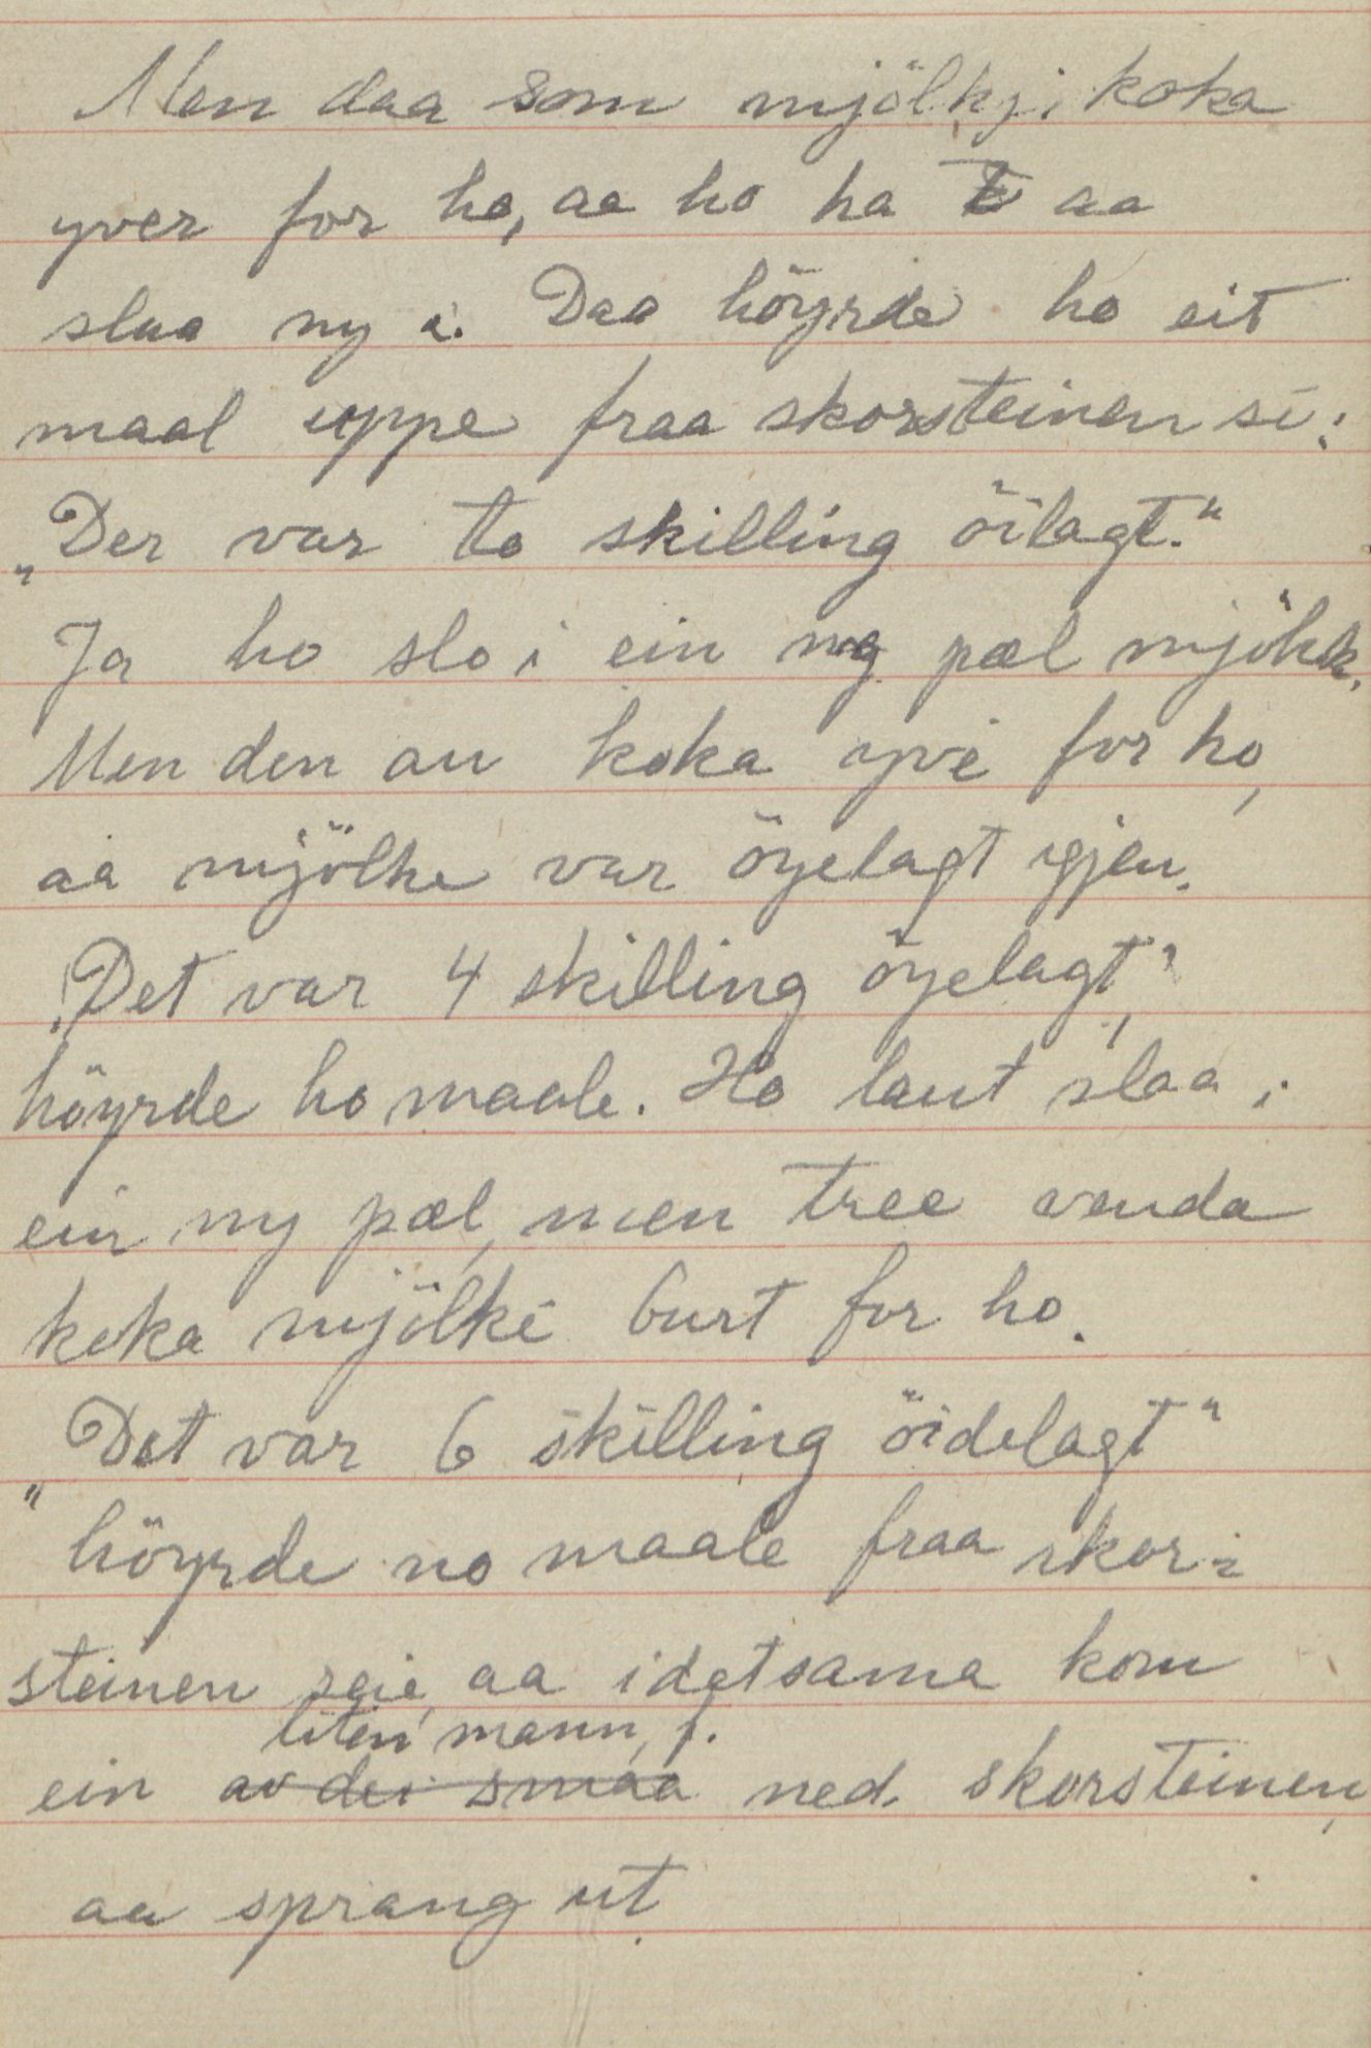 Men daa som mjölkji koka
yver for ho, aa ho ha aa
slaa ny i. Daa höyrde ho eit
maal uppe fraa skorsteinen si:
„Der var to skilling öilagt."
Ja ho slo i ein ny pæl mjölk.
Men den au koka yve for ho,
aa mjölke var öyelagt igjen.
„Det var 4 skilling öyelagt,"
höyrde ho maale. Ho laut slaa i
ein ny pæl, men tree venda
koka mjölke burt for ho.
„Det var 6 skilling öidelagt"
höyrde no maale fraa skor-
steinen seie, aa i det sama kom
liten mann,
ein av dei smaa ned skorsteinen,
aa sprang ut